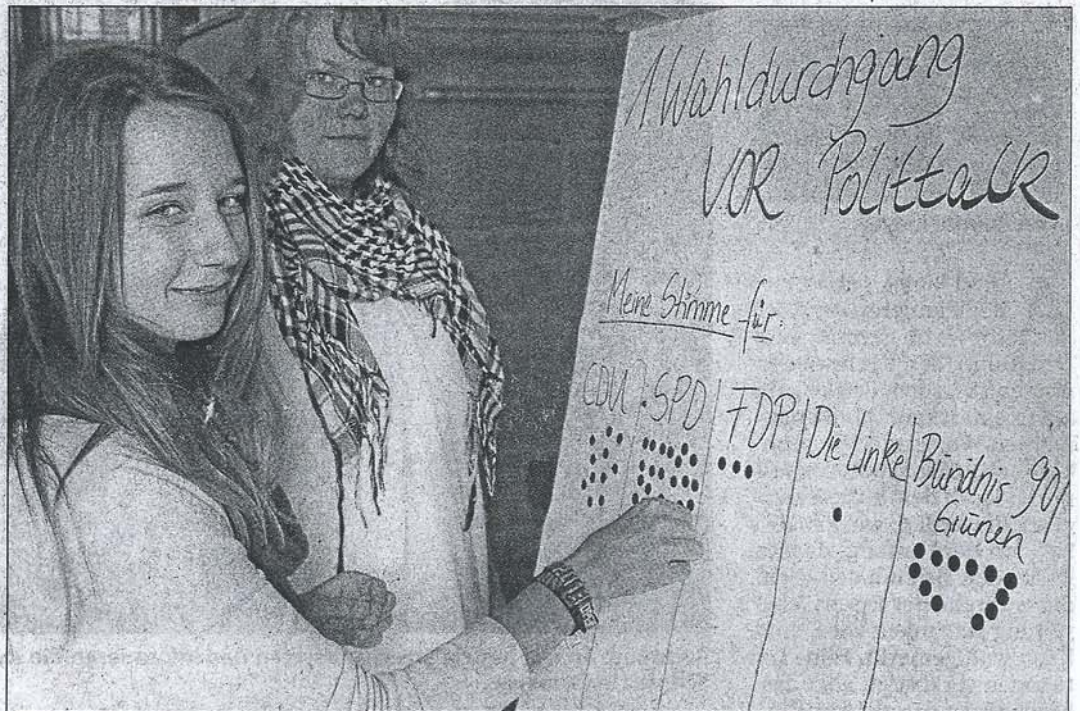 1. Wahldurchgang
VOR Polittalk
Meine Stimme für:
CDU SPD FDP Die Linke Bündnis 90/
Grünen